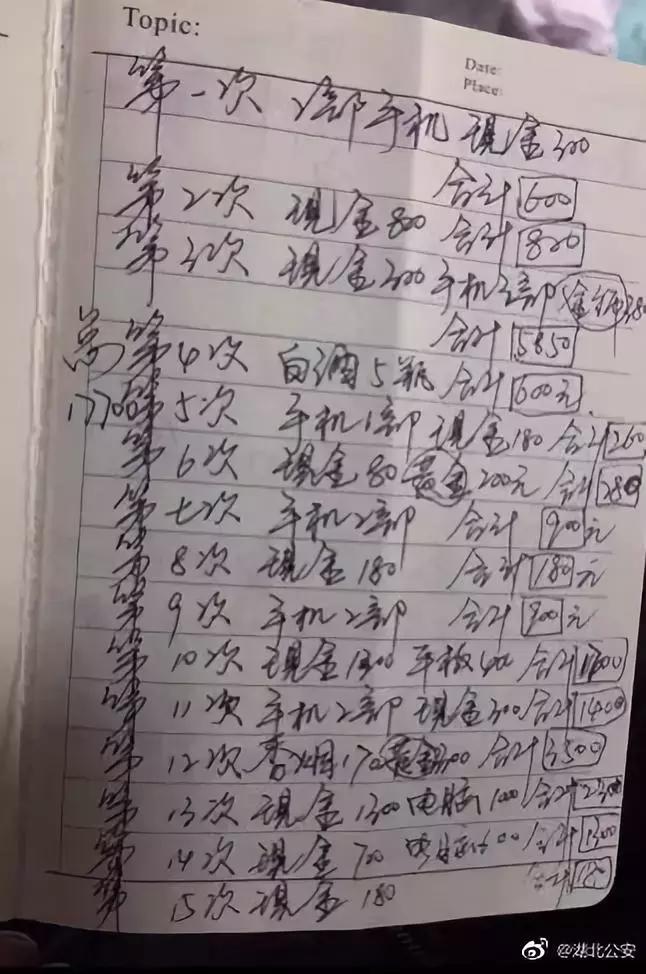 Topic:
Date:
Place:
第一次 手机 现金300
合计 600
第2次 现金800 合计 800
第3次 现金300 手机2部
合计 5850
总 第4次 白酒5瓶 合计 600元
17700 第5次 手机1部 现金180 合计 260
第6次 现金80 黄金200元 合计 280
第七次 手机2部 合计 900元
第8次 现金180 合计 180元
第9次 手机2部 合计 900元
第10次 现金1300 平板400 合计 1700
第11次 手机2部 现金500 合计 1400
第12次 香烟170 合计 3500
第13次 现金1300 电脑1000 合计 2300
第14次 现金700 电脑600 合计 1300
合计 180
第15次 现金180
@湖北公安